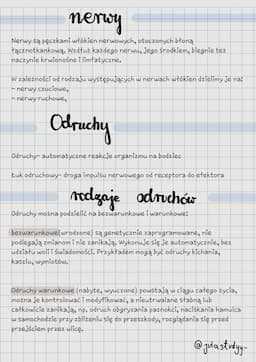 nerwy
Nerwy są pęczkami włókien nerwowych, otoczonych błoną
łącznotkankową. Wzdłuż każdego nerwu, jego środkiem, biegnie też
naczynie krwionośne i limfatyczne.
W zależności od rodzaju występujących w nerwach włókien dzielimy je na:
- nerwy czuciowe,
- nerwy ruchowe,
Odruchy
Odruchy- automatyczne reakcje organizmu na bodziec
Łuk odruchowy- droga impulsu nerwowego od receptora do efektora
rodzaje odruchów
Odruchy można podzielić na bezwarunkowe i warunkowe:
bezwarunkowe(wrodzone) są genetycznie zaprogramowane, nie
podlegają zmianom i nie zanikają. Wykonuje się je automatycznie, bez
udziału woli i świadomości. Przykładem mogą być odruchy kichania,
kaszlu, wymiotów.
Odruchy warunkowe (nabyte, wyuczone) powstają w ciągu całego życia,
można je kontrolować i modyfikować, a nieutrwalane słabną lub
całkowicie zanikają, np. odruch obgryzania paznokci, naciskania hamulca
w samochodzie przy zbliżeniu się do przeszkody, rozglądania się przed
przejściem przez ulicę.